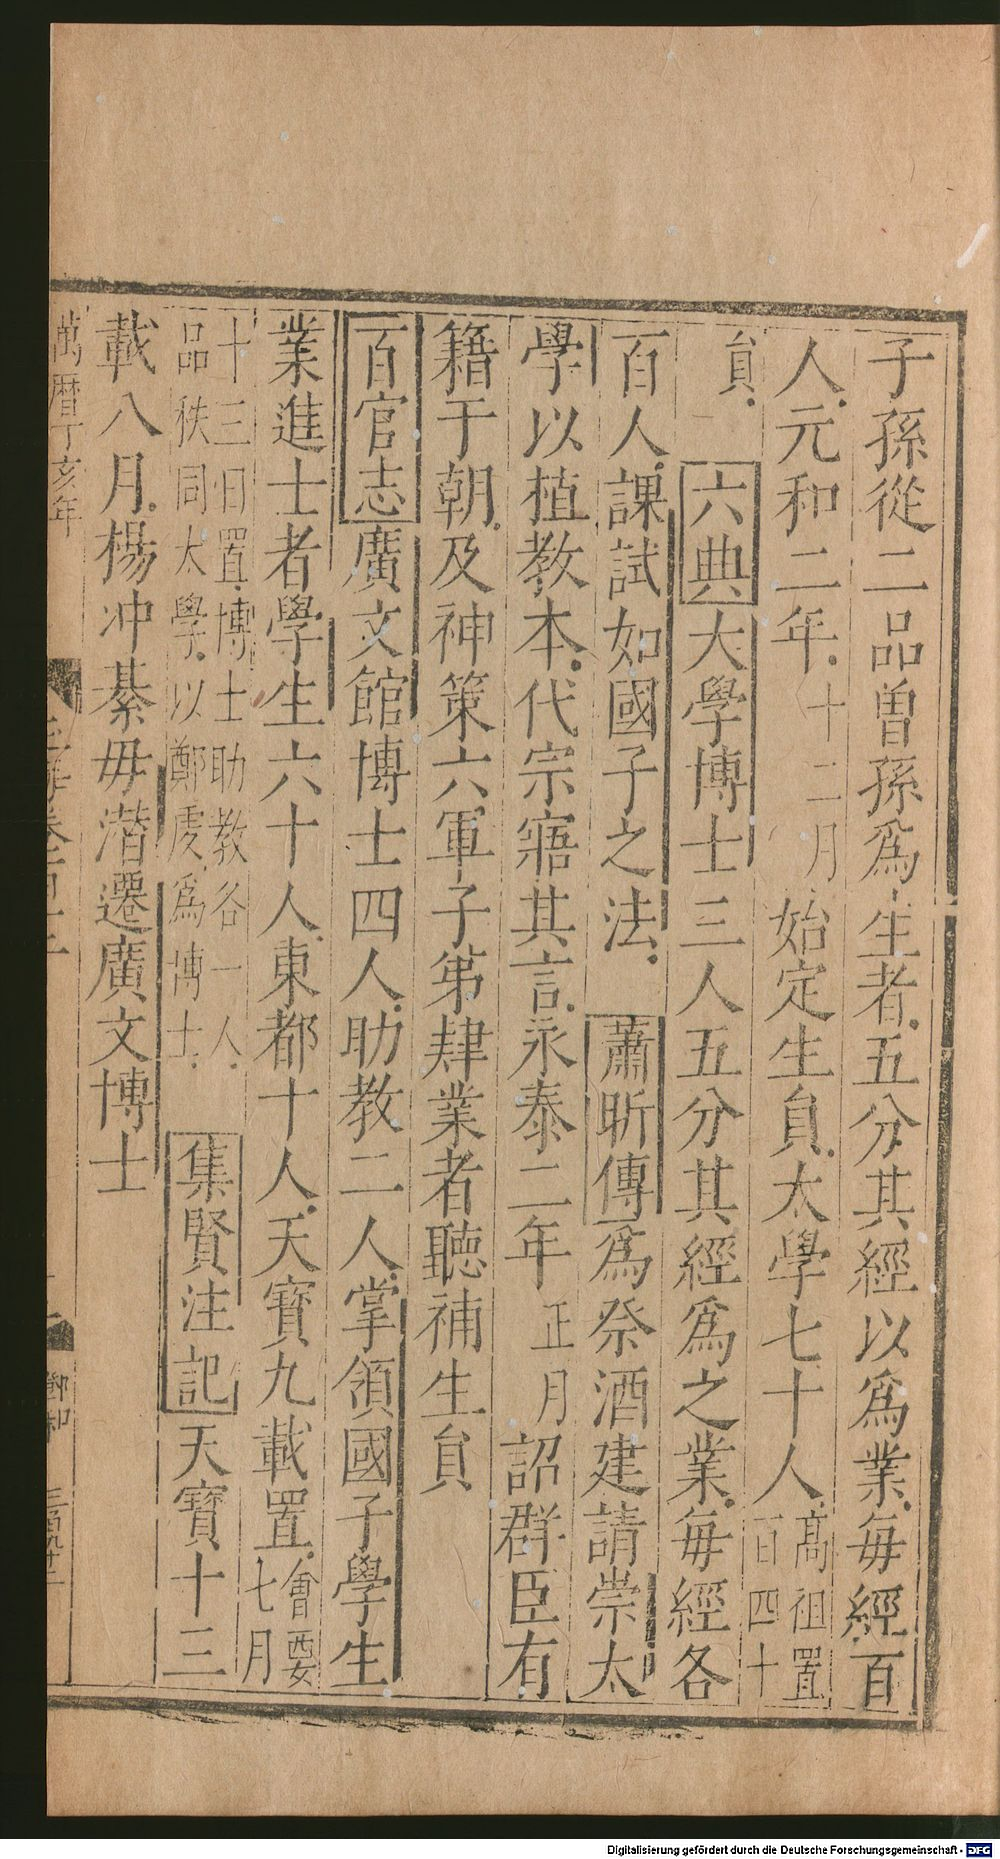 子孫從二品曽孫爲生者五分其經以爲業每經百
人元和二年十二月始定生員太學七十人高祖置百四十
員六典大學博士三人五分其經爲之業每經各
百人課試如國子之法蕭昕傳爲祭酒建請崇太
學以植教本代宗寤其言永泰二年正月詔群臣有
籍于朝及神策六軍子第肄業者聽補生員
百官志廣文館博士四人助教二人掌領國子學生
業進士者學生六十人東都十人天寶九載置會要七月
十三日置博士助教各一人品秩同太學以鄭虔爲博士集賢注記天寶十三
載八月楊冲綦毋潜遷廣文博士
萬曆丁亥年
Digitalisierung gefördert durch die Deutsche Forschungsgemeinschaft - DFG